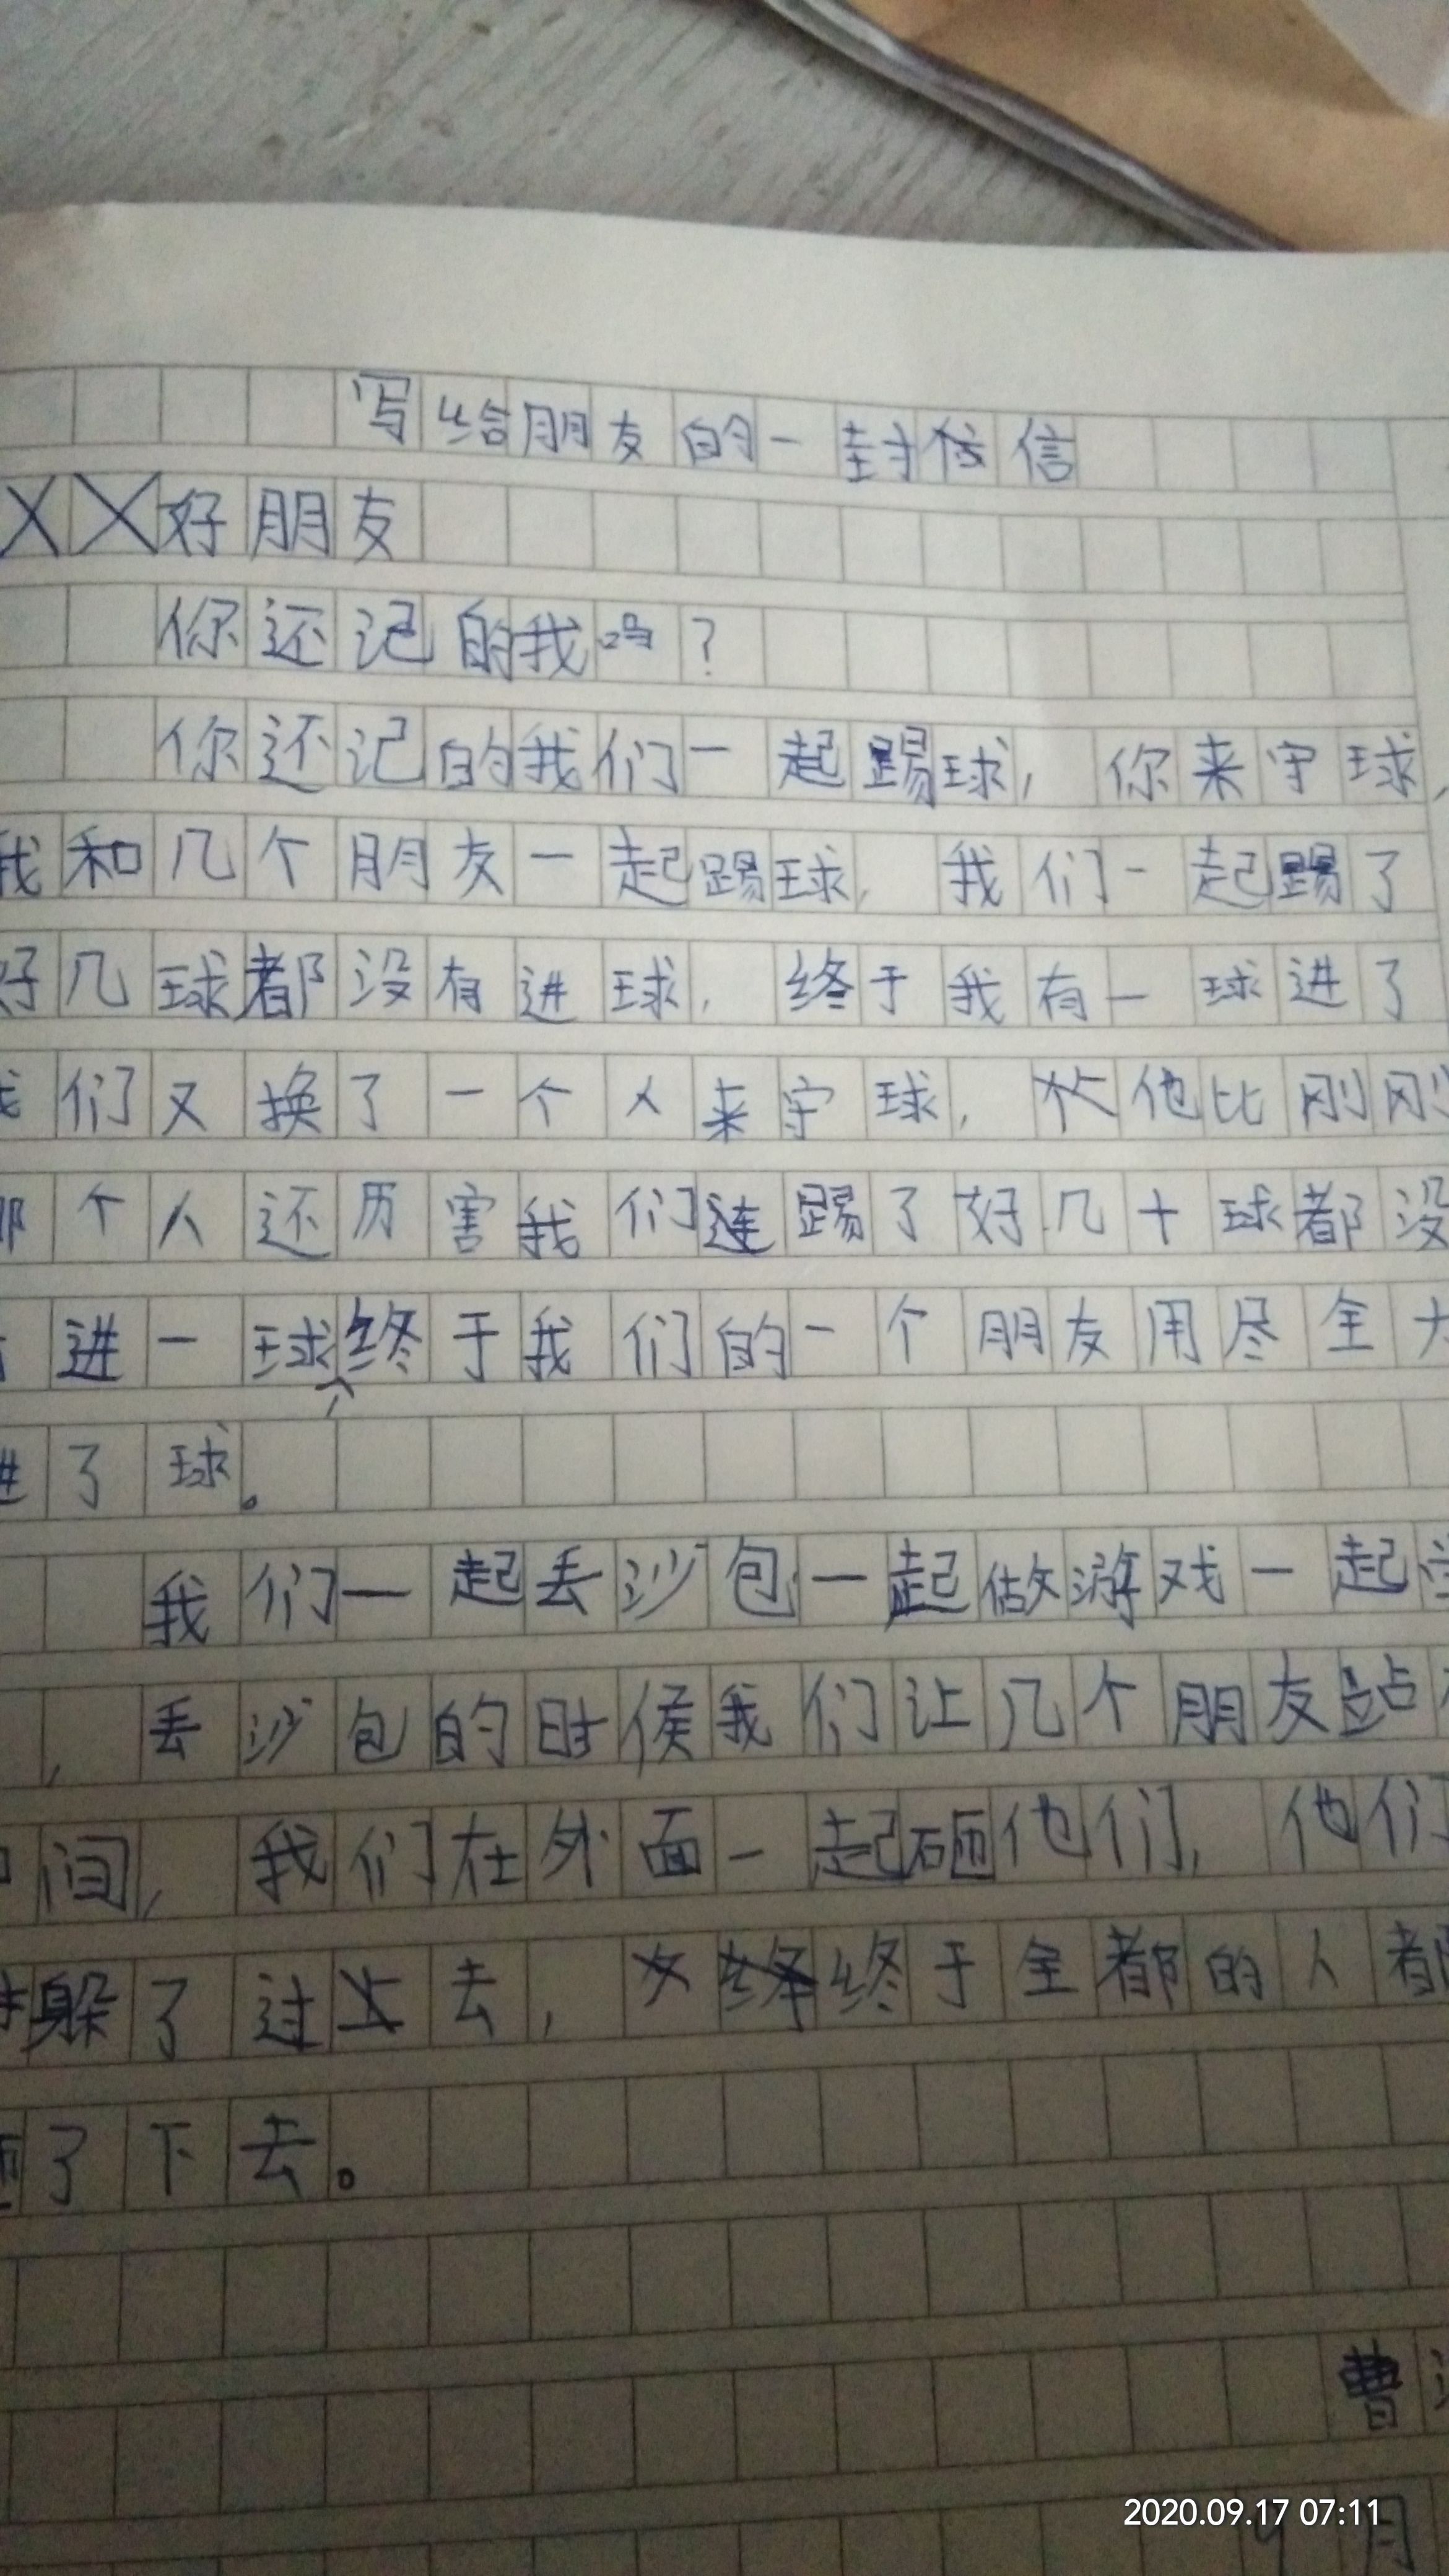 写给朋友的一封信
XX好朋友
你还记的我吗?
你还记的我们一起踢球,你来守球,
我和几个朋友一起踢球,我们一起踢了
好几球都没有进球,终于我有一球进了
我们又换了一个人来守球,他比刚刚
那个人还历害我们连踢了好几十球都没
进一球终于我们的一个朋友用尽全力
进了球。
我们一起丢沙包一起做游戏一起
,丢沙包的时侯我们让几个朋友站
中间,我们在外面一起砸他们,他们
躲了过去,终于全都的人都
砸了下去。
曹
9月
2020.09.17 07:11